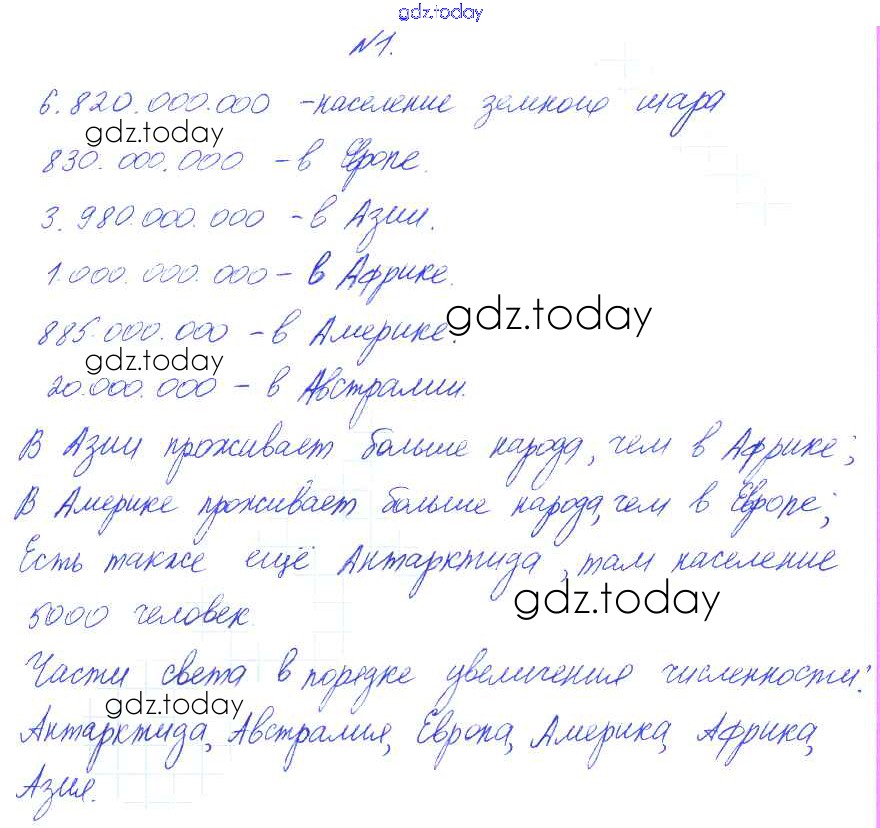 gdz.today
№1.
6.820.000.000 - население земного шара
gdz.today
830.000.000 - в Европе.
3.980.000.000 - в Азии.
1.000.000.000 - в Африке.
gdz.today
885.000.000 - в Америке.
gdz.today
20.000.000 - в Австралии.
В Азии проживает больше народа, чем в Африке;
В Америке проживает больше народа, чем в Европе;
Есть также ещё Антарктида, там население
gdz.today
5000 человек.
Части света в порядке увеличения численности:
gdz.today
Антарктида, Австралия, Европа, Америка, Африка,
Азия.